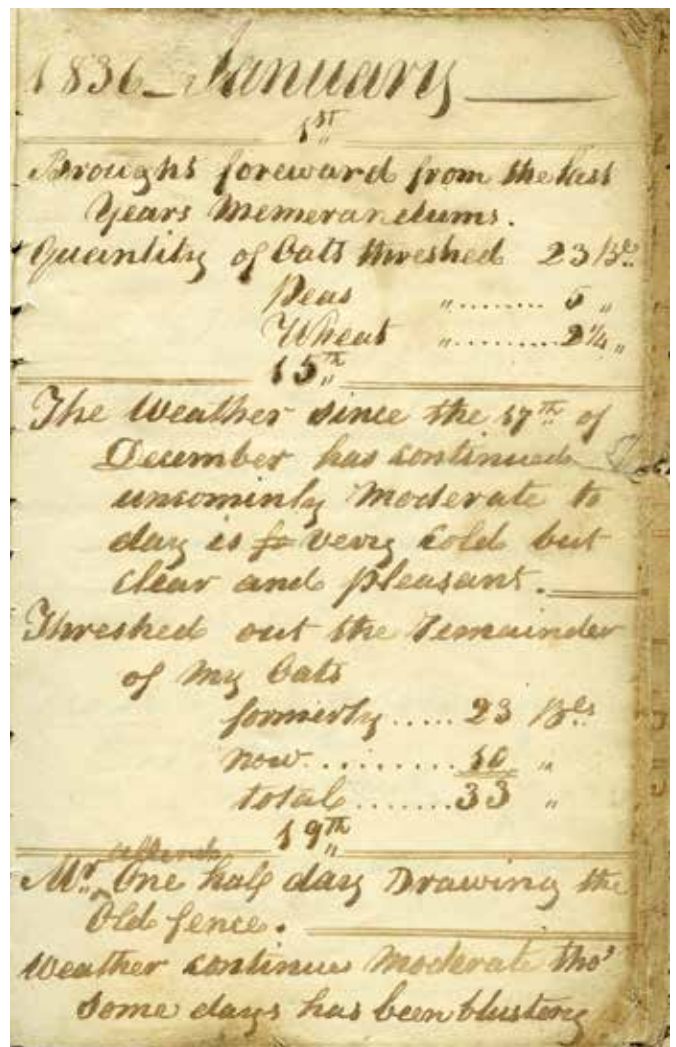 1836 – January
1st
Brought foreward from the last
Years Memerandums.
Quantity of Oats threshed 23 Bls
Peas " ........ 5 "
Wheat " ......... 2¼ "
15th
The Weather since the 17th of
December has continued
uncominly Moderate to
day is very Cold but
clear and pleasant.
Threshed out the Remainder
of My Oats
formerly ..... 23 Bls
now ......... 10 "
total ....... 33 "
19th
Mr One half day Drawing the
Old fence.
Weather continues Moderate tho'
some days has been blustery